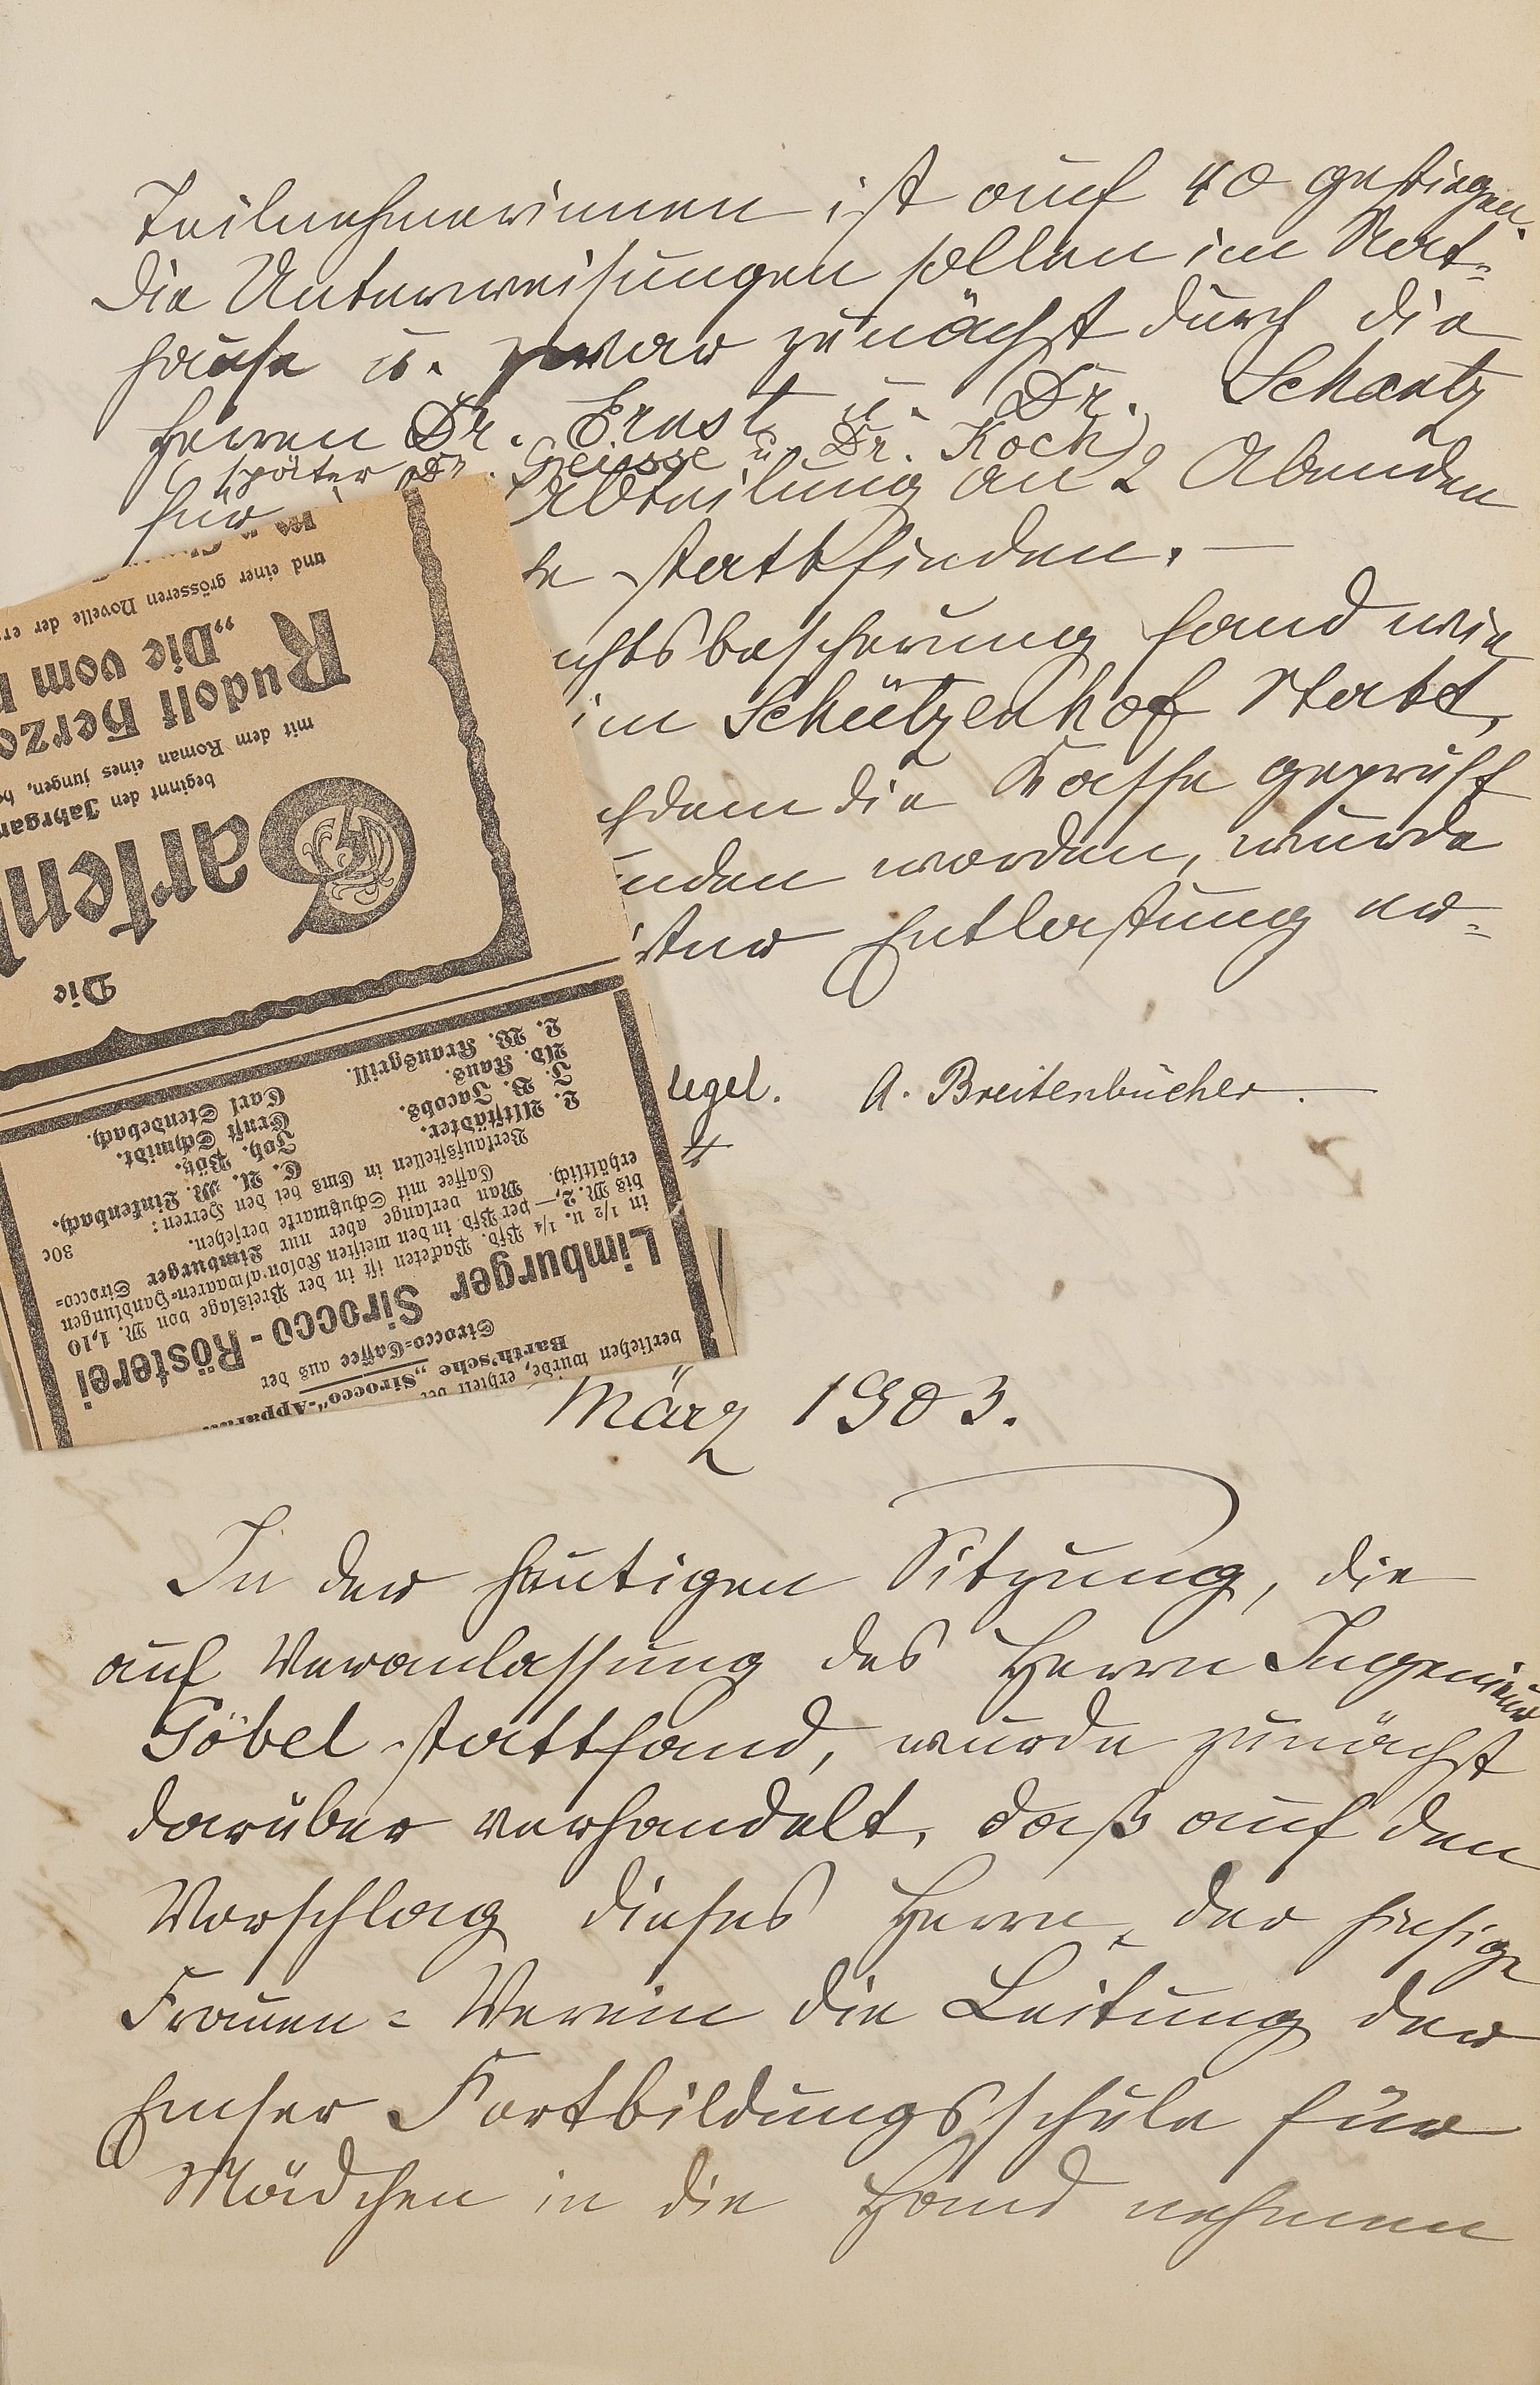 Teilnehmerinnen ist auf 40 gestiegen.
Die Unterweisungen sollen im Rat-
hause u. zwar zunächst durch die
Herren Dr. Ernst u. Dr. Schantz
(später Dr. Geisse u. Dr. Koch)
für Abteilung an 2 Abenden
stattfinden. —
chtsbescherung fand wie
im Schützenhof statt,
chdem die Kasse geprüft
unden worden, wurde
ister Entlastung er-
legel. A. Breitenbücher.
März 1903.
In der heutigen Sitzung, die
auf Veranlassung des Herrn Ingenieur
Göbel stattfand, wurde zunächst
darüber verhandelt, daß auf den
Vorschlag dieses Herrn, der hiesige
Frauen-Verein die Leitung der
Emser Fortbildungsschule für
Mädchen in die Hand nehmen
verliehen wurde, erhielt der
Barth'sche „Sirocco"-Appara
Sirocco-Caffee aus der
Limburger Sirocco-Rösterei
in 1/2 u. 1/4 Pfd. Packeten ist in der Preislage von M. 1,10
bis M. 2,— per Pfd. in den meisten Kolonialwaaren-Handlungen
erhältlich. Man verlange aber nur Limburger Sirocco-
Caffee mit Schutzmarke versehen. 30c
Verkaufsstellen in Ems bei den Herren:
L. Altstädter.
J. B. Jacobs.
Ad. Kauß.
L. W. Kraußgrill.
C. A. M. Lintenbach.
Joh. Pötz.
Ernst Schmidt.
Carl Stendebach.
Die
Gartenl
beginnt den Jahrgan
mit dem Roman eines jungen, b
Rudolf Herzo
„Die vom
und einer grösseren Novelle der ers